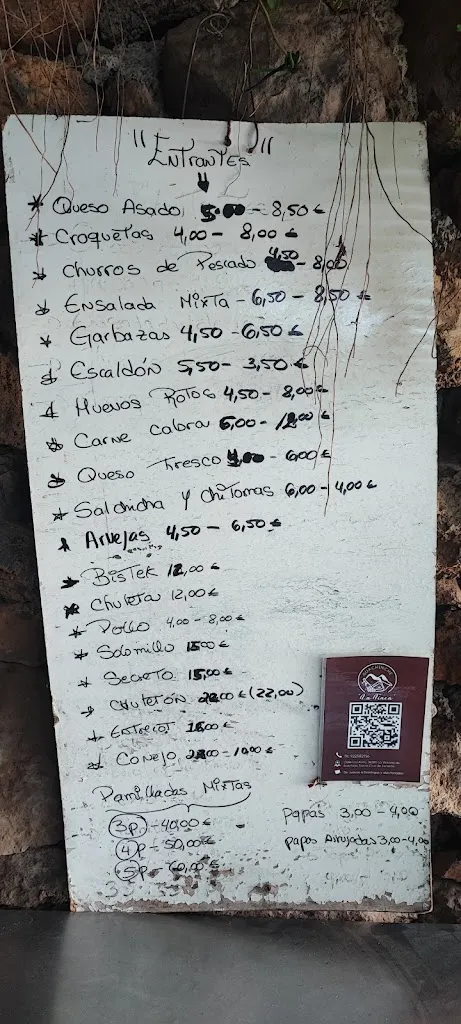 "Entrantes"
* Queso Asado 5.00 - 8,50 €
* Croquetas 4,00 - 8,00 €
* Churros de Pescado 4,50 - 8,00
* Ensalada Mixta - 6,50 - 8,50 €
* Garbazas 4,50 - 6,50 €
* Escaldón 5,50 - 3,50 €
* Huevos Rotos 4,50 - 8,00 €
* Carne Cabra 6,00 - 12,00 €
* Queso Fresco - 6,00 €
* Salchicha y Chistorras 6,00 - 4,00 €
* Arvejas 4,50 - 6,50 €
* Bistek 12,00 €
* Chuleta 12,00 €
* Pollo 4,00 - 8,00 €
* Solomillo 15,00 €
* Secreto 15,00 €
* Chuletón € (22,00)
* Entrecot €
* Conejo - 10,00 €
Parrilladas Mixtas
3p. - 40,00 €
4p - 50,00 €
5p - 60,00 €
papas 3,00 - 4,00
papas Arrujadas 3,00 - 4,00